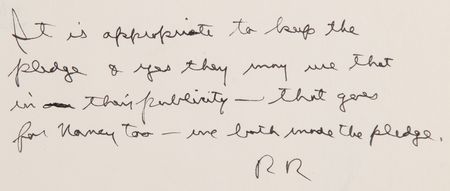 It is appropriate to keep the
pledge & yes they may use that
in their publicity — that goes
for Nancy too — we both made the pledge.
RR